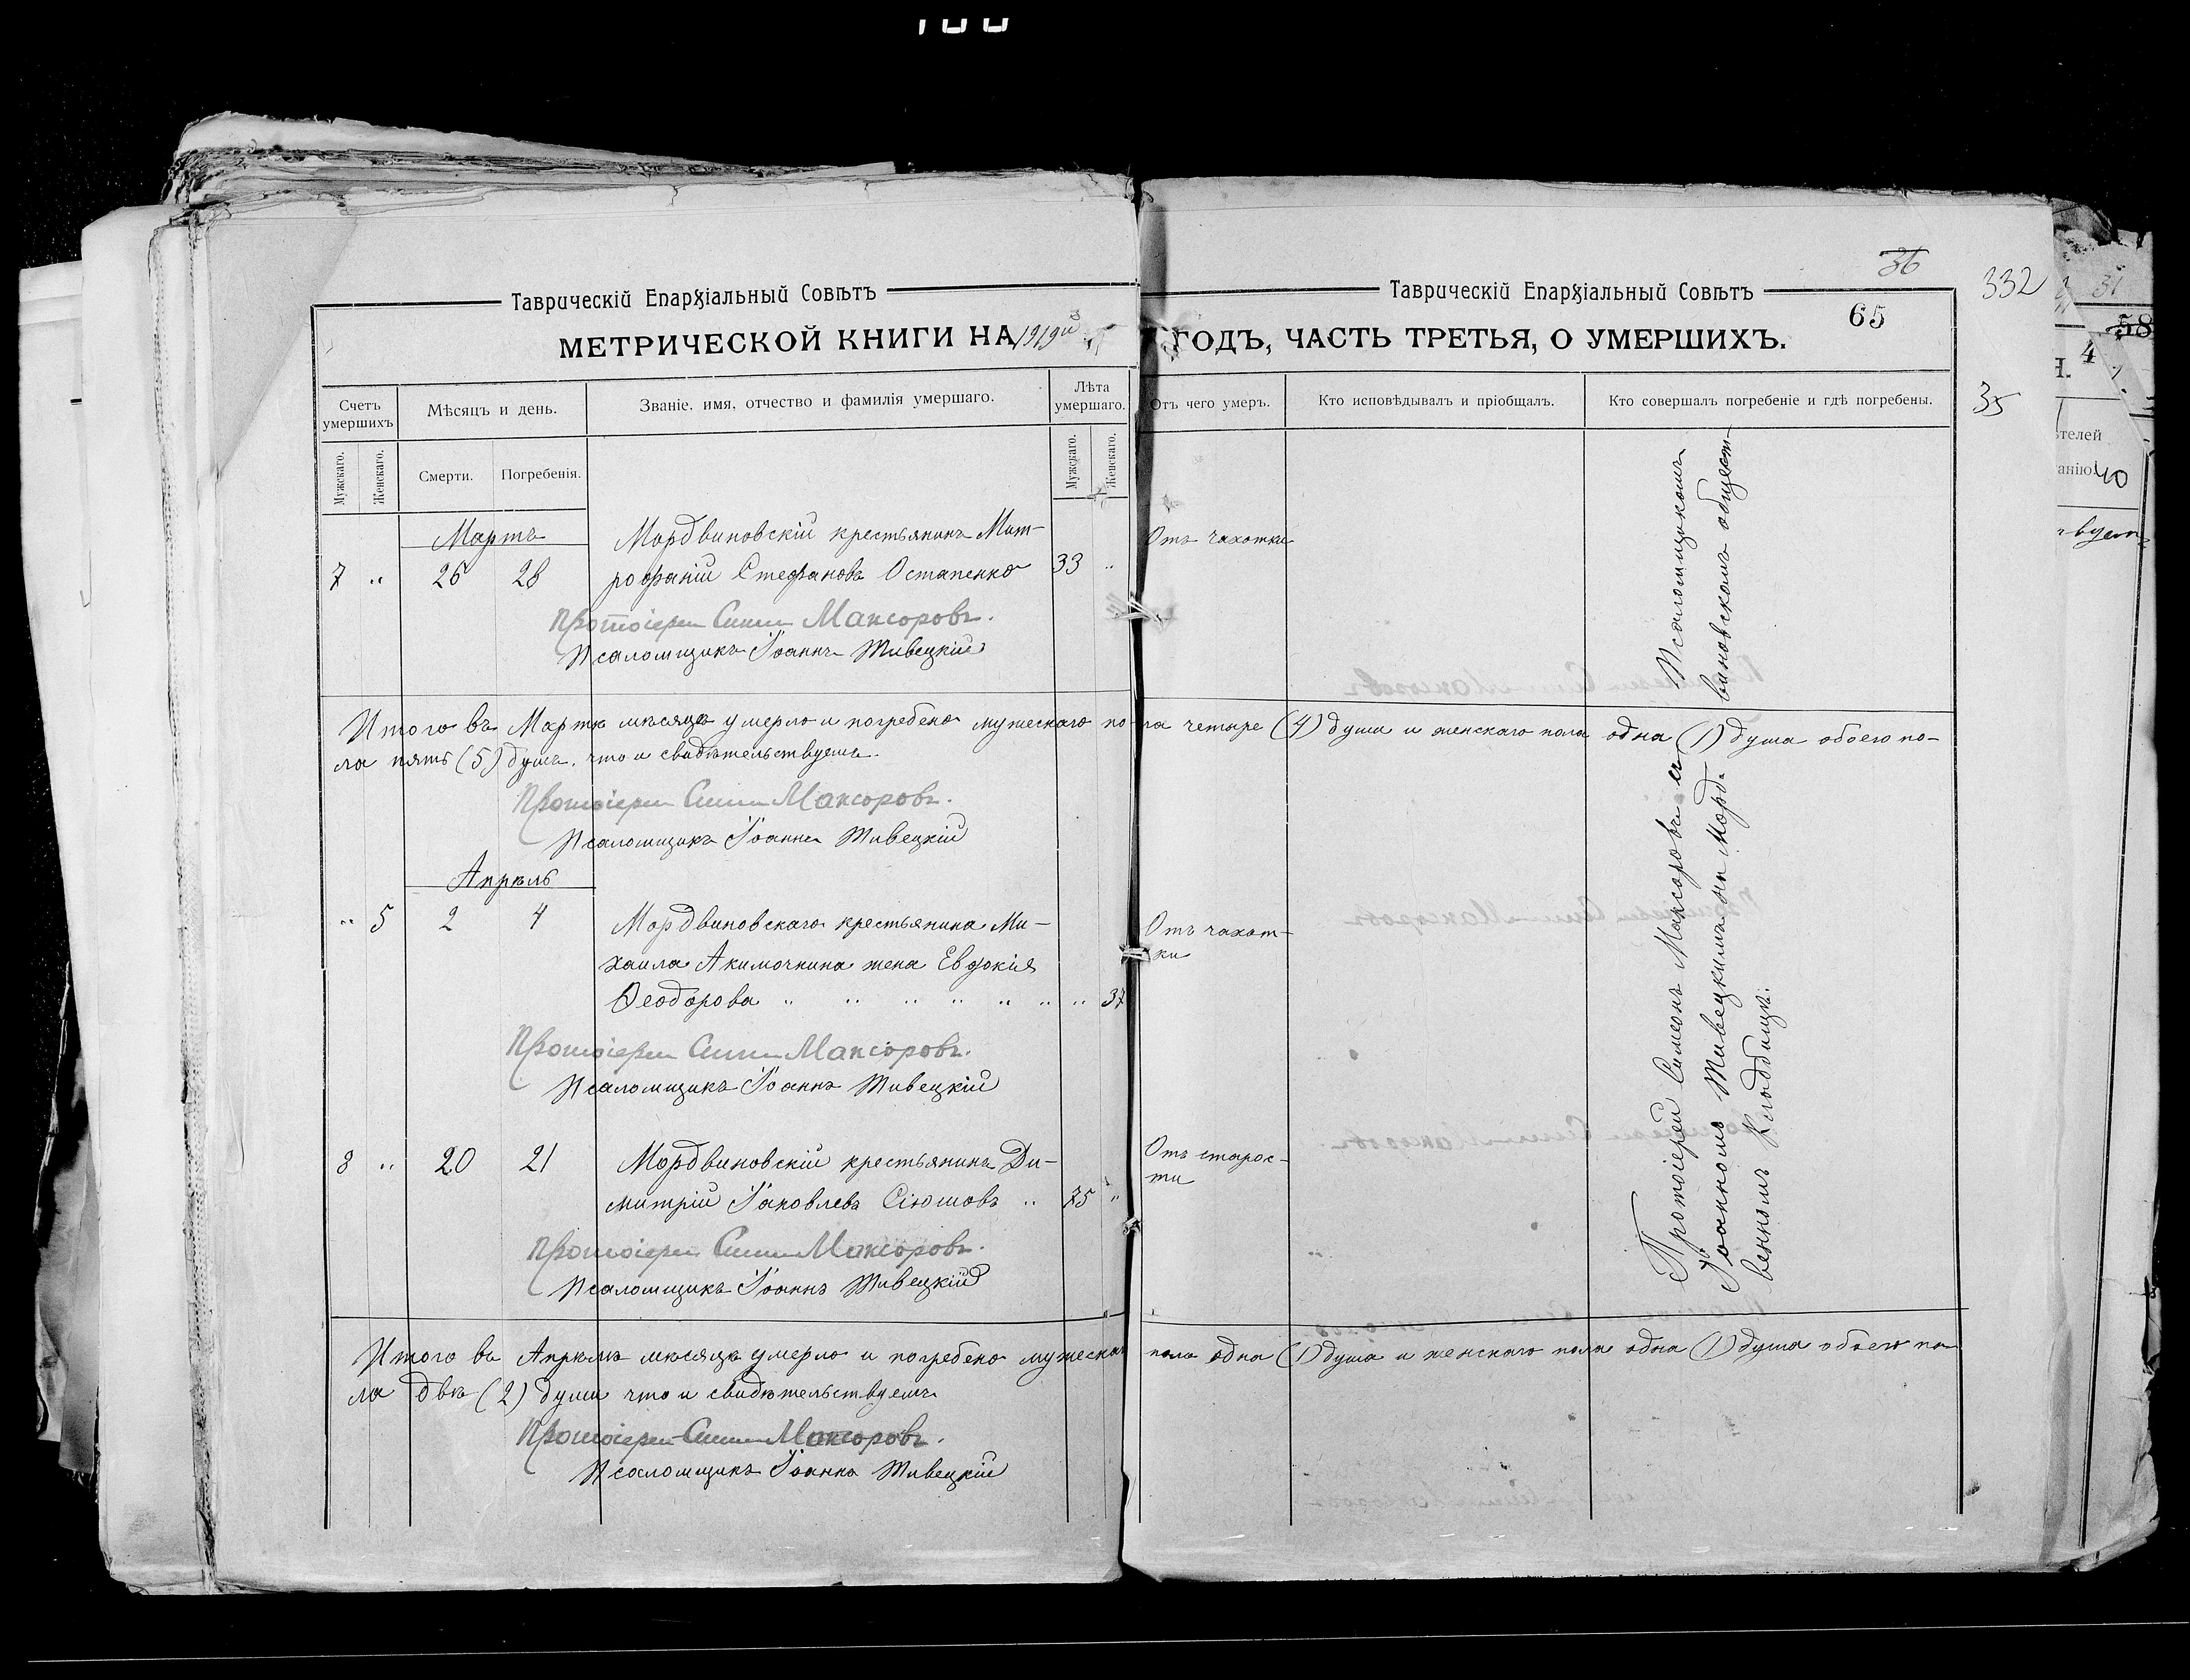 36
332
Таврическій Епархіальный Совѣтъ
Таврическій Епархіальный Совѣтъ
65
МЕТРИЧЕСКОЙ КНИГИ НА 1919й ГОДЪ, ЧАСТЬ ТРЕТЬЯ, О УМЕРШИХЪ.
35
Счетъ умершихъ
Мѣсяцъ и день.
Званіе, имя, отчество и фамилія умершаго.
Лѣта умершаго.
Отъ чего умеръ.
Кто исповѣдывалъ и пріобщалъ.
Кто совершалъ погребеніе и гдѣ погребены.
Мужскаго.
Женскаго.
Смерти.
Погребенія.
Мужскаго.
Женскаго.
Мартъ
Мордвиновскій крестьянинъ Мит-
Отъ чахотки
7 " 26 28 рофаній Стефановъ Остапенко 33 "
Протоіерей Симеонъ Максоровъ.
Псаломщикъ Іоаннъ Живецкій
Итого въ Мартѣ мѣсяцѣ умерло и погребено мужескаго по-ла четыре (4) души и женскаго пола одна (1) душа обоего по-
ла пять (5) душъ, что и свидѣтельствуемъ.
Протоіерей Симеонъ Максоровъ.
Псаломщикъ Іоаннъ Живецкій
Апрѣль
" 5 2 4 Мордвиновскаго крестьянина Ми-
Отъ чахот-
ки
хаила Акимочкина жена Евдокія
Ѳеодорова " " " " " " " 37
Протоіерей Симеонъ Максоровъ.
Псаломщикъ Іоаннъ Живецкій
8 " 20 21 Мордвиновскій крестьянинъ Ди-
Отъ старос-
ти
митрій Іаковлевъ Сіюшовъ " 75 "
Протоіерей Симеонъ Максоровъ.
Псаломщикъ Іоаннъ Живецкій
Протоіерей Симеонъ Максоровъ съ Псаломщикомъ
Іоанномъ Живецкимъ на Морд-виновскомъ общест-
венномъ кладбищѣ.
Итого въ Апрѣлѣ мѣсяцѣ умерло и погребено мужескаго пола одна (1) душа и женскаго пола одна (1) душа обоего по-
ла двѣ (2) души что и свидѣтельствуемъ
Протоіерей Симеонъ Максоровъ.
Псаломщикъ Іоаннъ Живецкій
31
58
4
40